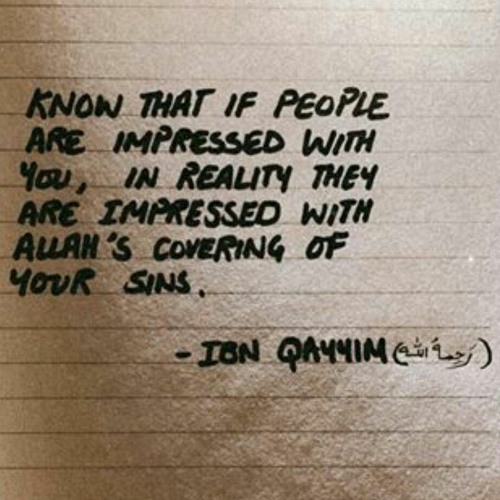 KNOW THAT IF PEOPLE
ARE IMPRESSED WITH
YOU, IN REALITY THEY
ARE IMPRESSED WITH
ALLAH'S COVERING OF
YOUR SINS.
- IBN QAYYIM (رَحِمَهُ اللهُ)